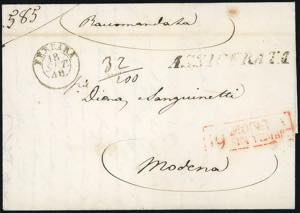 585
Raccomandata
FERRARA
18
ASSICURATA
32
200
Diena Sanguinetti
19
Modena